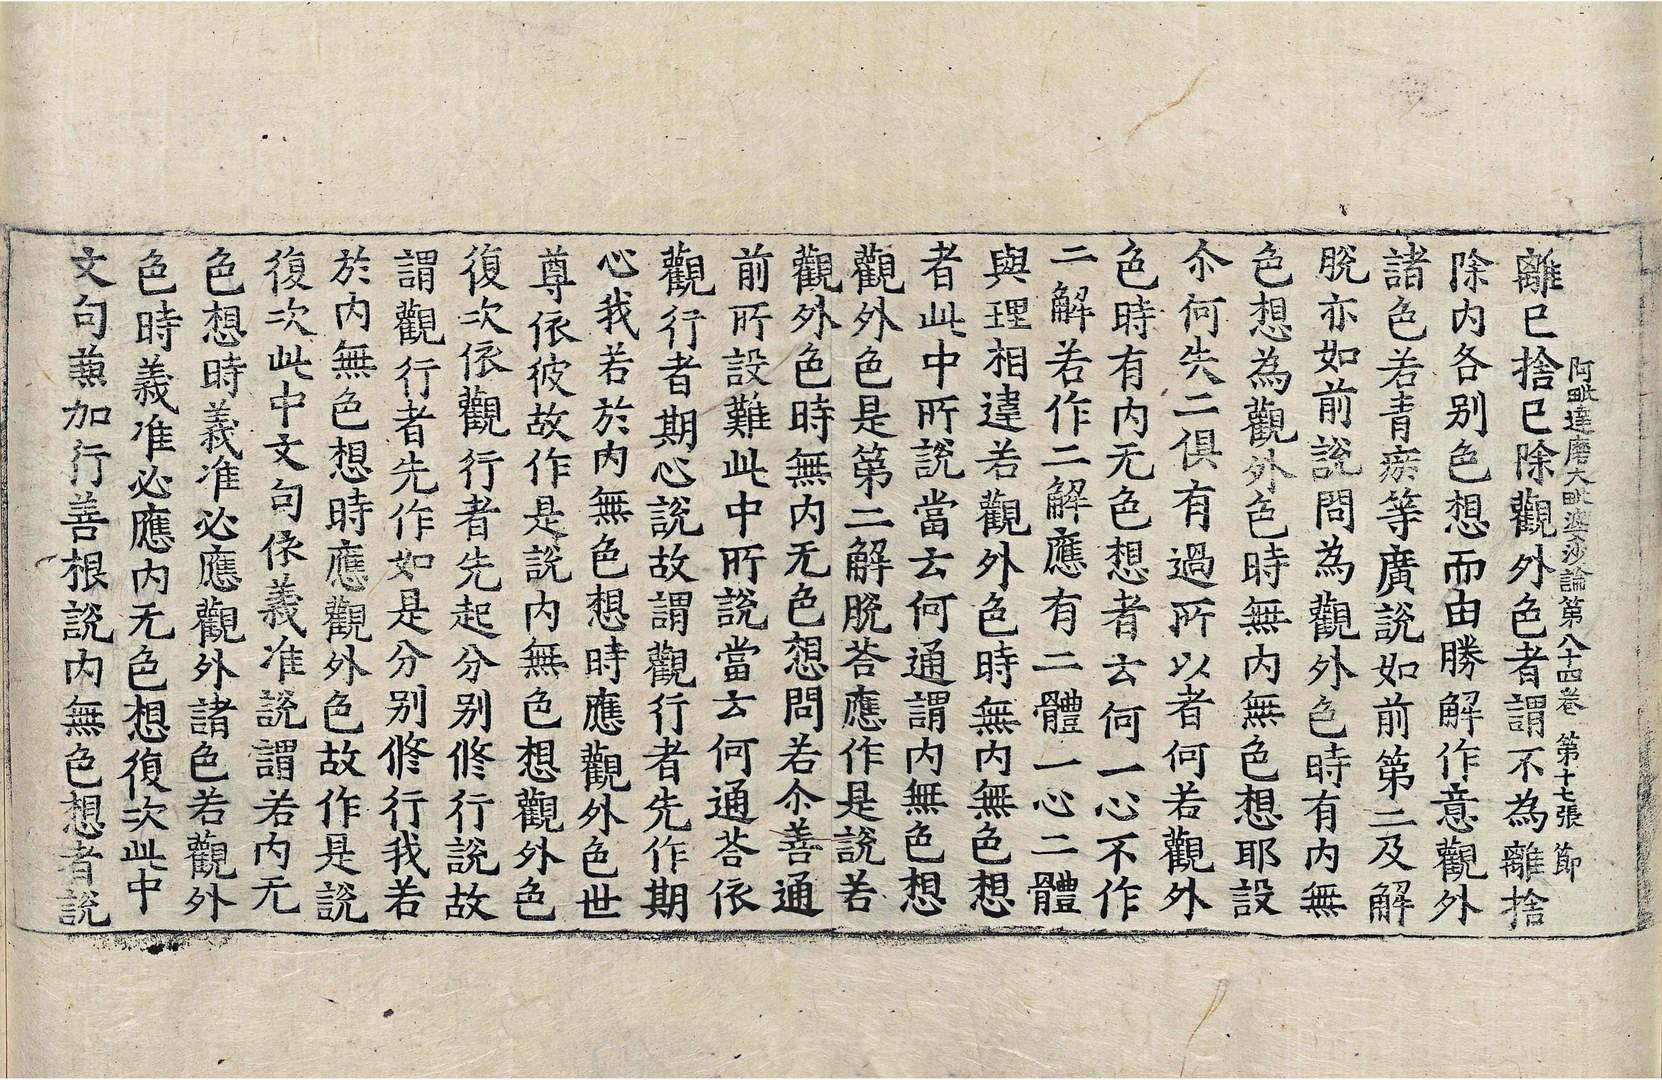 阿毗達磨大毗婆沙論第八十四卷 第十七張 節
離已捨已除觀外色者謂不為離捨
除內各別色想而由勝解作意觀外
諸色若青瘀等廣說如前第二及解
脫亦如前說問為觀外色時有內無
色想為觀外色時無內無色想耶設
尒何失二俱有過所以者何若觀外
色時有內无色想者云何一心不作
二解若作二解應有二體一心二體
與理相違若觀外色時無內無色想
者此中所說當云何通謂內無色想
觀外色是第二解脫荅應作是說若
觀外色時無內无色想問若尒善通
前所設難此中所說當云何通荅依
觀行者期心說故謂觀行者先作期
心我若於內無色想時應觀外色世
尊依彼故作是說內無色想觀外色
復次依觀行者先起分別修行說故
謂觀行者先作如是分別修行我若
於內無色想時應觀外色故作是說
復次此中文句依義准說謂若內无
色想時義准必應觀外諸色若觀外
色時義准必應內无色想復次此中
文句兼加行善根說內無色想者說